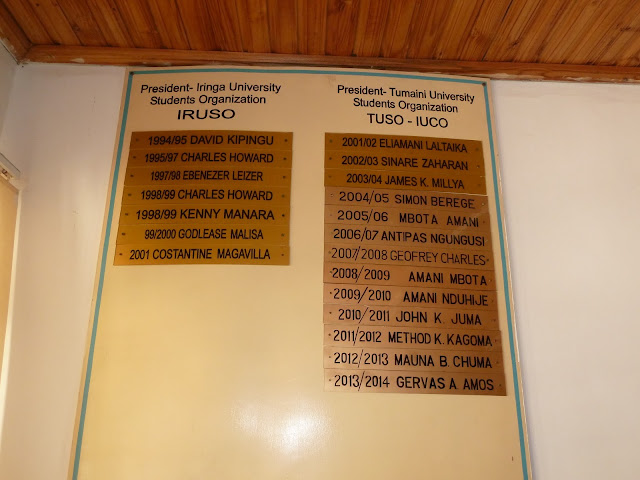 President- Iringa University
Students Organization
IRUSO
1994/95 DAVID KIPINGU
1995/97 CHARLES HOWARD
1997/98 EBENEZER LEIZER
1998/99 CHARLES HOWARD
1998/99 KENNY MANARA
99/2000 GODLEASE MALISA
2001 COSTANTINE MAGAVILLA
President- Tumaini University
Students Organization
TUSO - IUCO
2001/02 ELIAMANI LALTAIKA
2002/03 SINARE ZAHARAN
2003/04 JAMES K. MILLYA
2004/05 SIMON BEREGE
2005/06 MBOTA AMANI
2006/07 ANTIPAS NGUNGUSI
2007/2008 GEOFREY CHARLES
2008/2009 AMANI MBOTA
2009/2010 AMANI NDUHIJE
2010/2011 JOHN K. JUMA
2011/2012 METHOD K. KAGOMA
2012/2013 MAUNA B. CHUMA
2013/2014 GERVAS A. AMOS